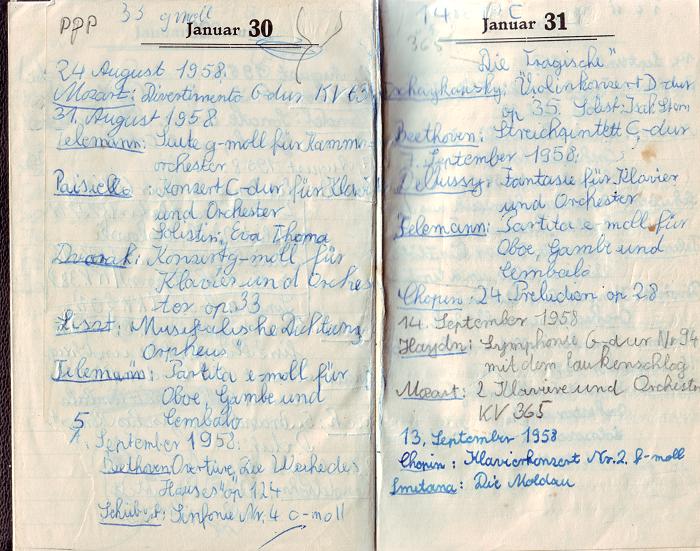 ppp 33 g moll
Januar 30
24 August 1958.
Mozart: Divertimento G-dur KV 63
31. August 1958
Telemann: Suite g-moll für Kammer
orchester
Paisiello: Konzert C-dur für Klavi
und Orchester
Solistin: Eva Thoma
Dvorak: Konzert g-moll für
Klavier und Orches
ter op 33
Liszt: Musikalische Dichtung
"Orpheus"
Telemann: Partita e-moll für
Oboe, Gambe und
Cembalo
5
7. September 1958.
Beethoven Overtüre, Die Weihe des
Hauses" op 124
Schubert: Sinfonie Nr. 4 c-moll
14 C
Januar 31
365
Die Tragische"
Tschaykowsky: Violinkonzert D-dur
op 35. Solist: Isak Stern
Beethoven: Streichquintett C-dur
7. September 1958.
Debussy: Fantasie für Klavier
und Orchester
Telemann: Partita e-moll für
Oboe, Gambe und
Cembalo
Chopin: 24 Preludien op 28
14. September 1958
Haydn: Symphonie G-dur Nr. 94
mit dem Paukenschlag
Mozart: 2 Klaviere und Orchest
KV 365
13. September 1958
Chopin: Klavierkonzert Nr. 2. f-moll
Smetana: Die Moldau